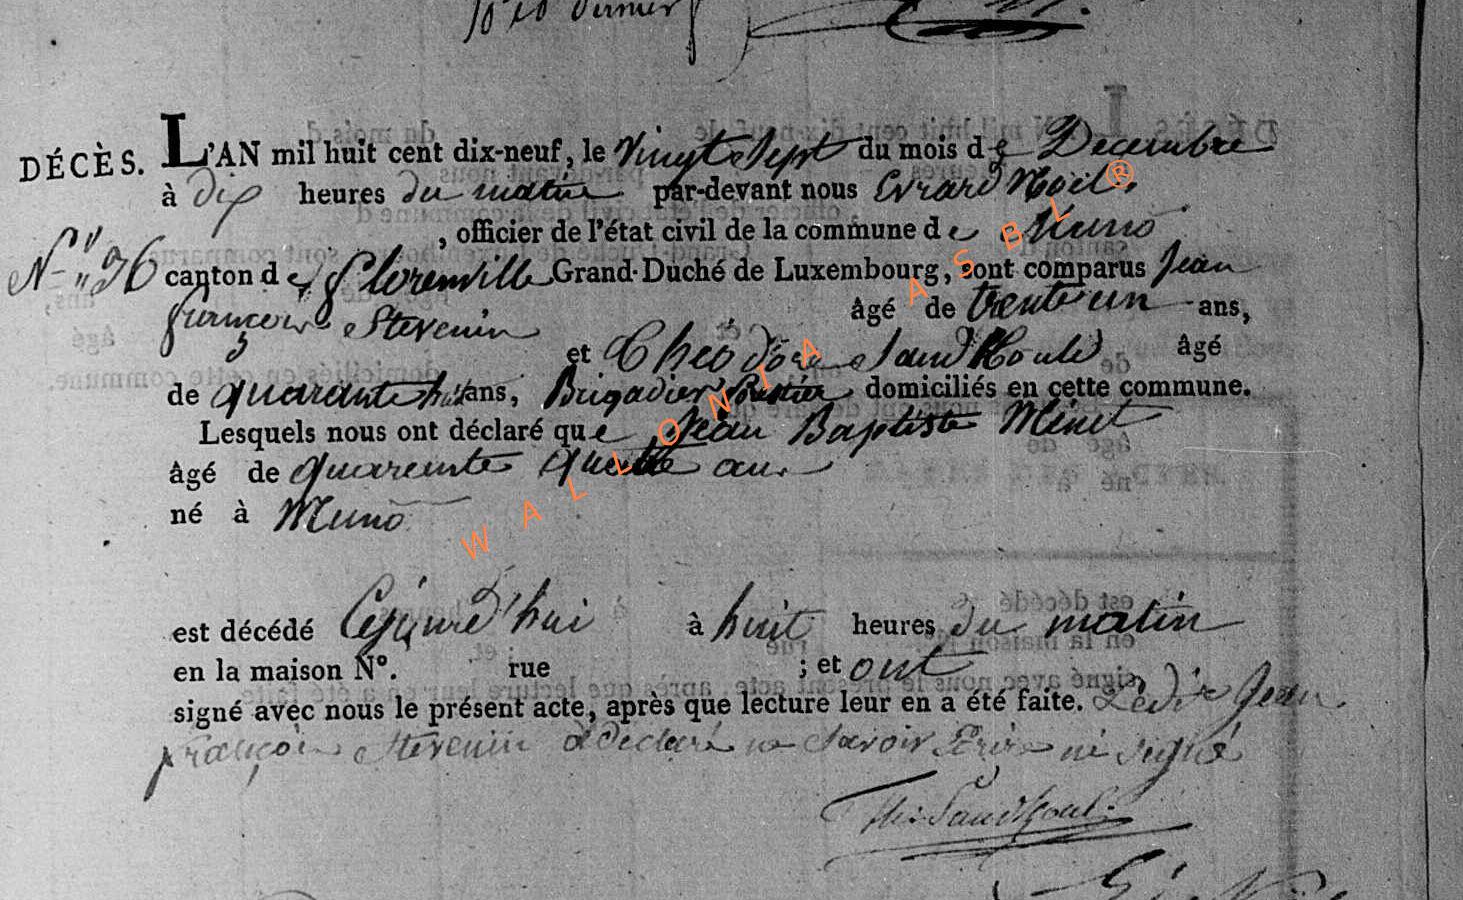 DÉCÈS. L'AN mil huit cent dix-neuf, le Vingt Sept du mois de Decembre
à dix heures du matin par-devant nous Evrard Noël
, officier de l'état civil de la commune de Muno
N° 26 canton de Florenville Grand-Duché de Luxembourg, sont comparus Jean
françois Stevenin âgé de trente un ans,
et Théodore Sand Houle âgé
de quarante huit ans, Brigadier forestier domiciliés en cette commune.
Lesquels nous ont déclaré que Jean Baptiste Minet
âgé de quarante quatre ans
né à Muno
est décédé Cejourd'hui à huit heures du matin
en la maison N°. rue ; et ont
signé avec nous le présent acte, après que lecture leur en a été faite. Ledit Jean
françois Stevenin a declaré ne Savoir Ecrire ni signé
WALLONIA ASBL®